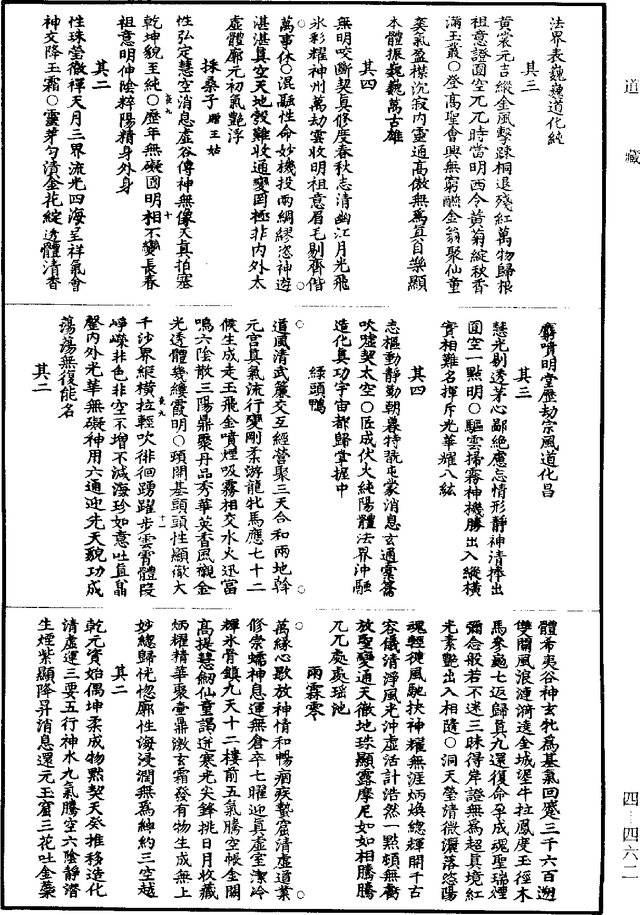 道藏
法界表巍巍道化純
其三
黄裳元吉縱金風擊疎桐退殘紅萬物歸根
祖意證圓空兀兀時當明西今黄菊綻秋香
滿玉叢○登髙聖會興無窮醮金翁聚仙童
奕氣盈襟沉寂内靈通髙傲無為真自樂顯
本體振巍巍萬古雄
其四
無明咬斷契真修度春秋志清幽江月光飛
氷彩耀神州萬劫雲收明祖意眉毛剔齊偕
萬事休○混融性命妙機投兩綢繆恣神遊
湛湛真空天地殼難收通變罔極非内外太
虛體廓元初氣艷浮
採桑子 贈王姑
性弘定慧空消息虛谷傳神無像天真拍塞
乾坤貌至純○歷年無礙圓明相不變長春
祖意明伸陰粹陽精身外身
其二
性珠瑩徹禪天月三界流光四海呈祥氣會
神交降玉霜○靈芽勻漬金花綻透體清香
麝噴明堂歷劫宗風道化昌
其三
慧光剔透茅心鄙絶慮忘情形靜神清捧出
圓空一點明○驅雲掃霧神機勝出入縱橫
實相難名揮斥光華耀八紘
其四
志樞動靜勤朝暮特屯蒙消息玄通橐籥
吹噓契太空○匠成伏火純陽體法界沖融
造化真功宇宙都歸掌握中
緑頭鴨
道風清武簾交互經營聚三天合和兩地幹
元宫真氣流行變剛柔游龍牝馬應七十二
候生成走玉飛金噴煙吸霧相交水火迅雷
鳴六陰散三陽鼎聚丹品秀華英香風襯金
光透體幾縷霞明○頭開基頭頭性顯徹大
千沙界縱橫拉輕吹徘徊踴躍步雲霄體段
崢嶸非色非空不增不減海珍如意吐真晶
罄内外光華無礙神用六通迎先天貌功成
蕩蕩無復能名
其二
體希夷谷神玄牝為基氣回蹙三千六百遡
雙關風浪漣漪達金城堡牛拉鳳度玉徑木
馬參龜七返歸真九還復命孕成魂聖瑞煙
彌念般若不迷三昧得岸證無為超真境紅
光素艷出入相隨○洞天瑩清微瀰落陽
魂輕徤風馳扶神耀無涯炳煥總輝開千古
容儀清淨風光沖虛活計浩然一點頓無虧
放聖變通天徹地珠顯露摩尼如如相騰騰
兀兀處處瑶池
雨霖零
萬緣心歇放神情和暢痼疾蟄窟清虛道業
修崇蠕神息運無倉卒七曜迎真虛室潔冷
輝氷骨鎮九天十二樓前五氣騰空帳金闕
髙提慧劒仙童謁逆寒光尖鋒挑日月收藏
炳耀精華聚壷鼎漱玄霜發有物生成無上
妙緫歸恍惚廓性海浸潤無為紳約三空越
其二
乾元資始偶坤柔成物點契天癸推移造化
清虛運三要五行神水九氣騰空六陰靜潜
生煙紫顯降昇消息還元玉窟三花吐金蘂
四—四六二